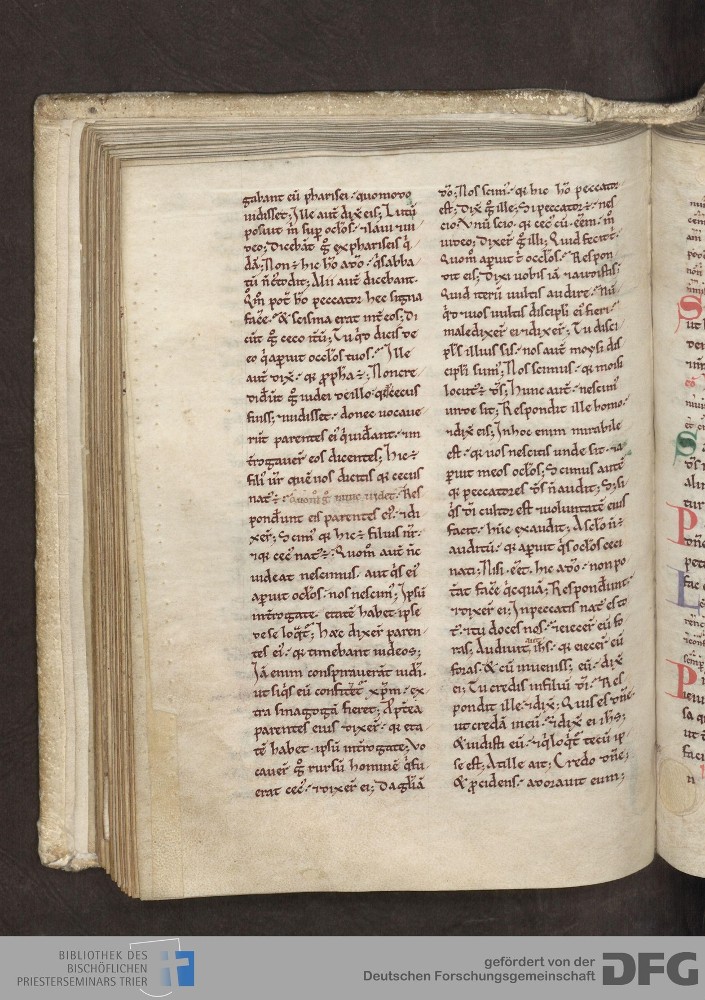 gabant eū pharisei· quomodo
uidisset; Ille aut̄ dix̄ eis; Lutū
posuit m̄ sup ocłos· ⁊ laui ⁊ ui
deo; Dicebāt g̊ ex phariseis q̇
dā; Non ÷ hic hō a dō· q̇ sabba
tū n̄ c̄todit; Alii aut̄ dicebant·
Qm̊ pot̄ hō peccator hec signa
facē· & scisma erat int̄ eos; Di
cūt g̊ ceco itū; Tu q̇d dicis de
eo q̇ aperuit ocłos tuos· Ille
aut̄ dix̄· qꝛ ꝓpha ÷; Non cre
diđūt g̊ iudei de illo· qꝛ cecus
fuiss; ⁊ uidisset· donec uocaue
rūt parentes ei᷒ q̇ uiđant· ⁊ in
t̄rogauer̄ eos dicentes; Hic ÷
fili᷒ ur̄ quē uos dicitis qꝛ cecus
nat᷒ ÷· Quom̊ g̊ nunc uidet· Res
ponđunt eis parentes ei᷒· ⁊ di
xer̄; Scim᷒ qꝛ hic ÷ filius nr̄·
⁊ qꝛ cec᷒ nat᷒ ÷· Quom̊ aut̄ n̄c
uideat nescimus· aut q̇s ei᷒
apuit ocłos· nos nescim᷒; Ipsū
int̄rogate· etatē habet· ipse
de se loq̇t᷒; Hæc dixer̄ paren
tes ei᷒· qꝛ timebant iudeos;
Iā enim conspirauerāt iudi·
ut siq̇s eū confitet᷒ xp̄m· ex
tra sinagogā fieret; Ꝓpt̄ea
parentes eius dixer̄· qꝛ eta
tē habet· ipsū int̄rogate; Vo
cauer̄ g̊ rursū hominē q̇ fu
erat cec᷒· ⁊ dixer̄ ei; Da głiā
dō; Nos scim᷒· qꝛ hic hō peccator
est; Dix̄ g̊ ille; Si peccator ÷· nes
cio; Vnū scio· qꝛ cec᷒ cū eēm· m̊
uideo; Dixer̄ g̊ illi; Quid fecit t·
Quom̊ apuit t ocłos· Respon
dit eis; Dixi uobis iā ⁊ audistis;
Quid iterū uultis audire· Nū
q̇d ⁊ uos uultis discipłi ei᷒ fieri·
maledixer̄ ei ⁊ dixer̄; Tu disci
pls illius sis· nos aut̄ moysi dis
cipłi sum᷒; Nos scimus· qꝛ moisi
locut᷒ ÷ d̄s; Hunc aut̄· nescim᷒
unde sit; Respondit ille homo·
⁊ dix̄ eis; In hoc enim mirabile
est· qꝛ uos nescitis unde sit· ⁊ a
peruit meos ocłos; Scimus autē
qꝛ peccatores d̄s n̄ audit; S; si
q̇s d̄i cultor est ⁊ uoluntatē eius
facit· hūc exaudit; A sc̄lo n̄ ÷
auditū· qꝛ apuit q̇s ocłos ceci
nati; Nisi eēt hic a dō· non po
t̄at facē q̇cquā; Responđunt·
⁊ dixer̄ ei; In peccatis nat᷒ es to
t᷒· ⁊ tu doces nos· ⁊ eiecer̄ eū fo
ras; Audiuit aut̄ ih̄s· qꝛ eiecer̄ eū
foras· & cū inueniss; eū· dix̄
ei; Tu credis in filiū d̄i· Res
pondit ille ⁊ dix̄; Quis est d̄ne·
ut credā in eū· ⁊ dix̄ ei ih̄s;
& uidisti eū· ⁊ q̇ loq̇t᷒ tecū ip
se est; At ille ait; Credo d̄ne;
& ꝓcidens· adorauit eum;
BIBLIOTHEK DES
BISCHÖFLICHEN
PRIESTERSEMINARS TRIER
gefördert von der
Deutschen Forschungsgemeinschaft
DFG